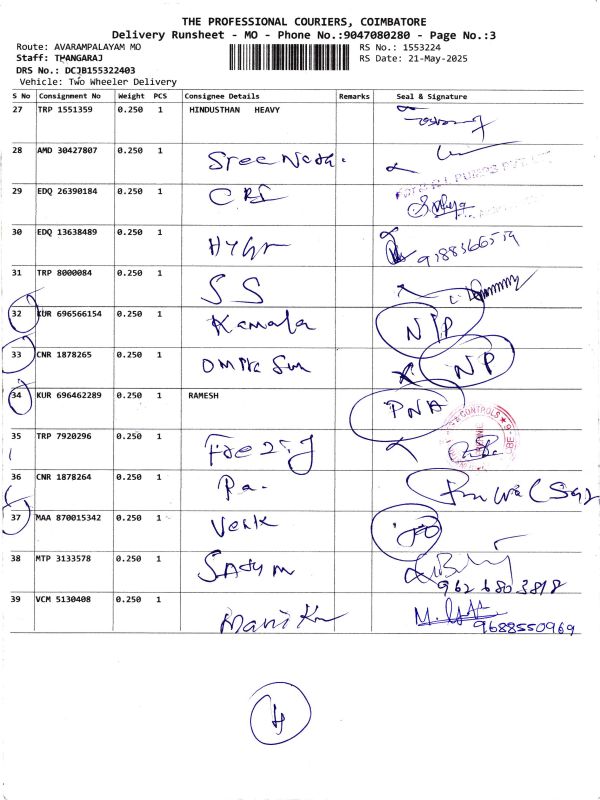 THE PROFESSIONAL COURIERS, COIMBATORE
Delivery Runsheet - MO - Phone No.:9047080280 - Page No.:3
Route: AVARAMPALAYAM MO RS No.: 1553224
Staff: THANGARAJ RS Date: 21-May-2025
DRS No.: DCJB155322403
Vehicle: Two Wheeler Delivery
S No Consignment No Weight PCS Consignee Details Remarks Seal & Signature
27 TRP 1551359 0.250 1 HINDUSTHAN HEAVY
28 AMD 30427807 0.250 1 Sree
29 EDQ 26390184 0.250 1 CRI
30 EDQ 13638489 0.250 1
31 TRP 8000084 0.250 1 S S
32 KUR 696566154 0.250 1 Kamala N/P
33 CNR 1878265 0.250 1 NP
34 KUR 696462289 0.250 1 RAMESH PNA
35 TRP 7920296 0.250 1
36 CNR 1878264 0.250 1 Pa.
37 MAA 870015342 0.250 1
38 MTP 3133578 0.250 1 9626803818
39 VCM 5130408 0.250 1 9688550969